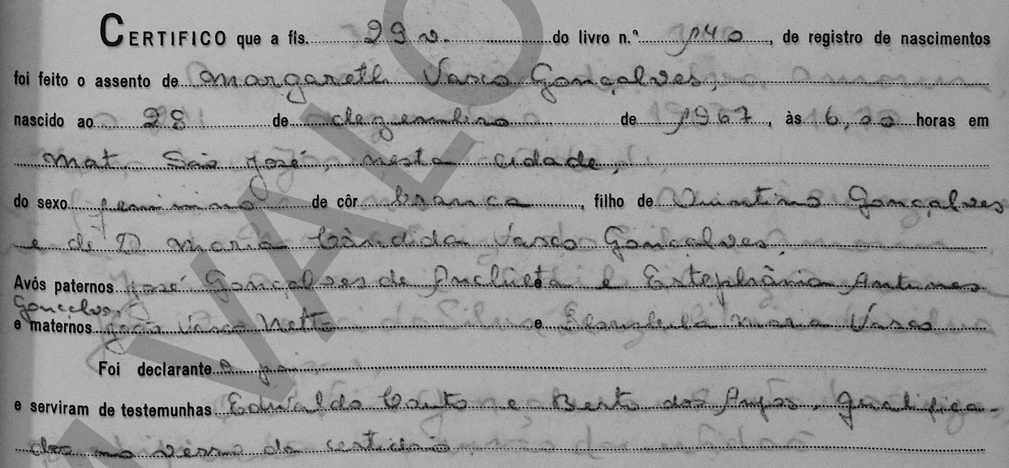 CERTIFICO que a fls. 29 v. do livro n.º 140, de registro de nascimentos
foi feito o assento de Margareth Vasco Gonçalves,
nascido ao 28 de dezembro de 1967, às 6,00 horas em
Mat. São José, nesta cidade,
do sexo feminino de côr branca, filho de Quintino Gonçalves
e de D. Maria Cândida Vasco Gonçalves.
Avós paternos José Gonçalves de Anchieta e Estephânia Antunes
Goncelves
e maternos João Vasco Netto e Vasco
Foi declarante o pai
e serviram de testemunhas Edvaldo Couto e Berto dos Anjos, qualifica-
dos no verso da certidão
VALO